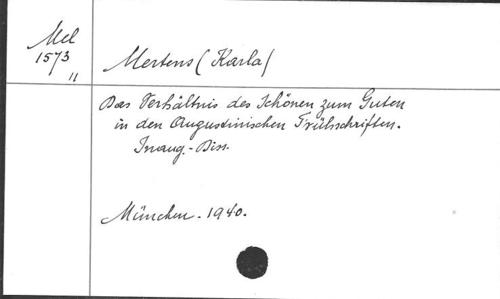 Mel
1573
11
Mertens (Karla)
Das Verhältnis des Schönen zum Guten
in den Augustinischen Frühschriften.
Inaug.-Diss.
München. 1940.